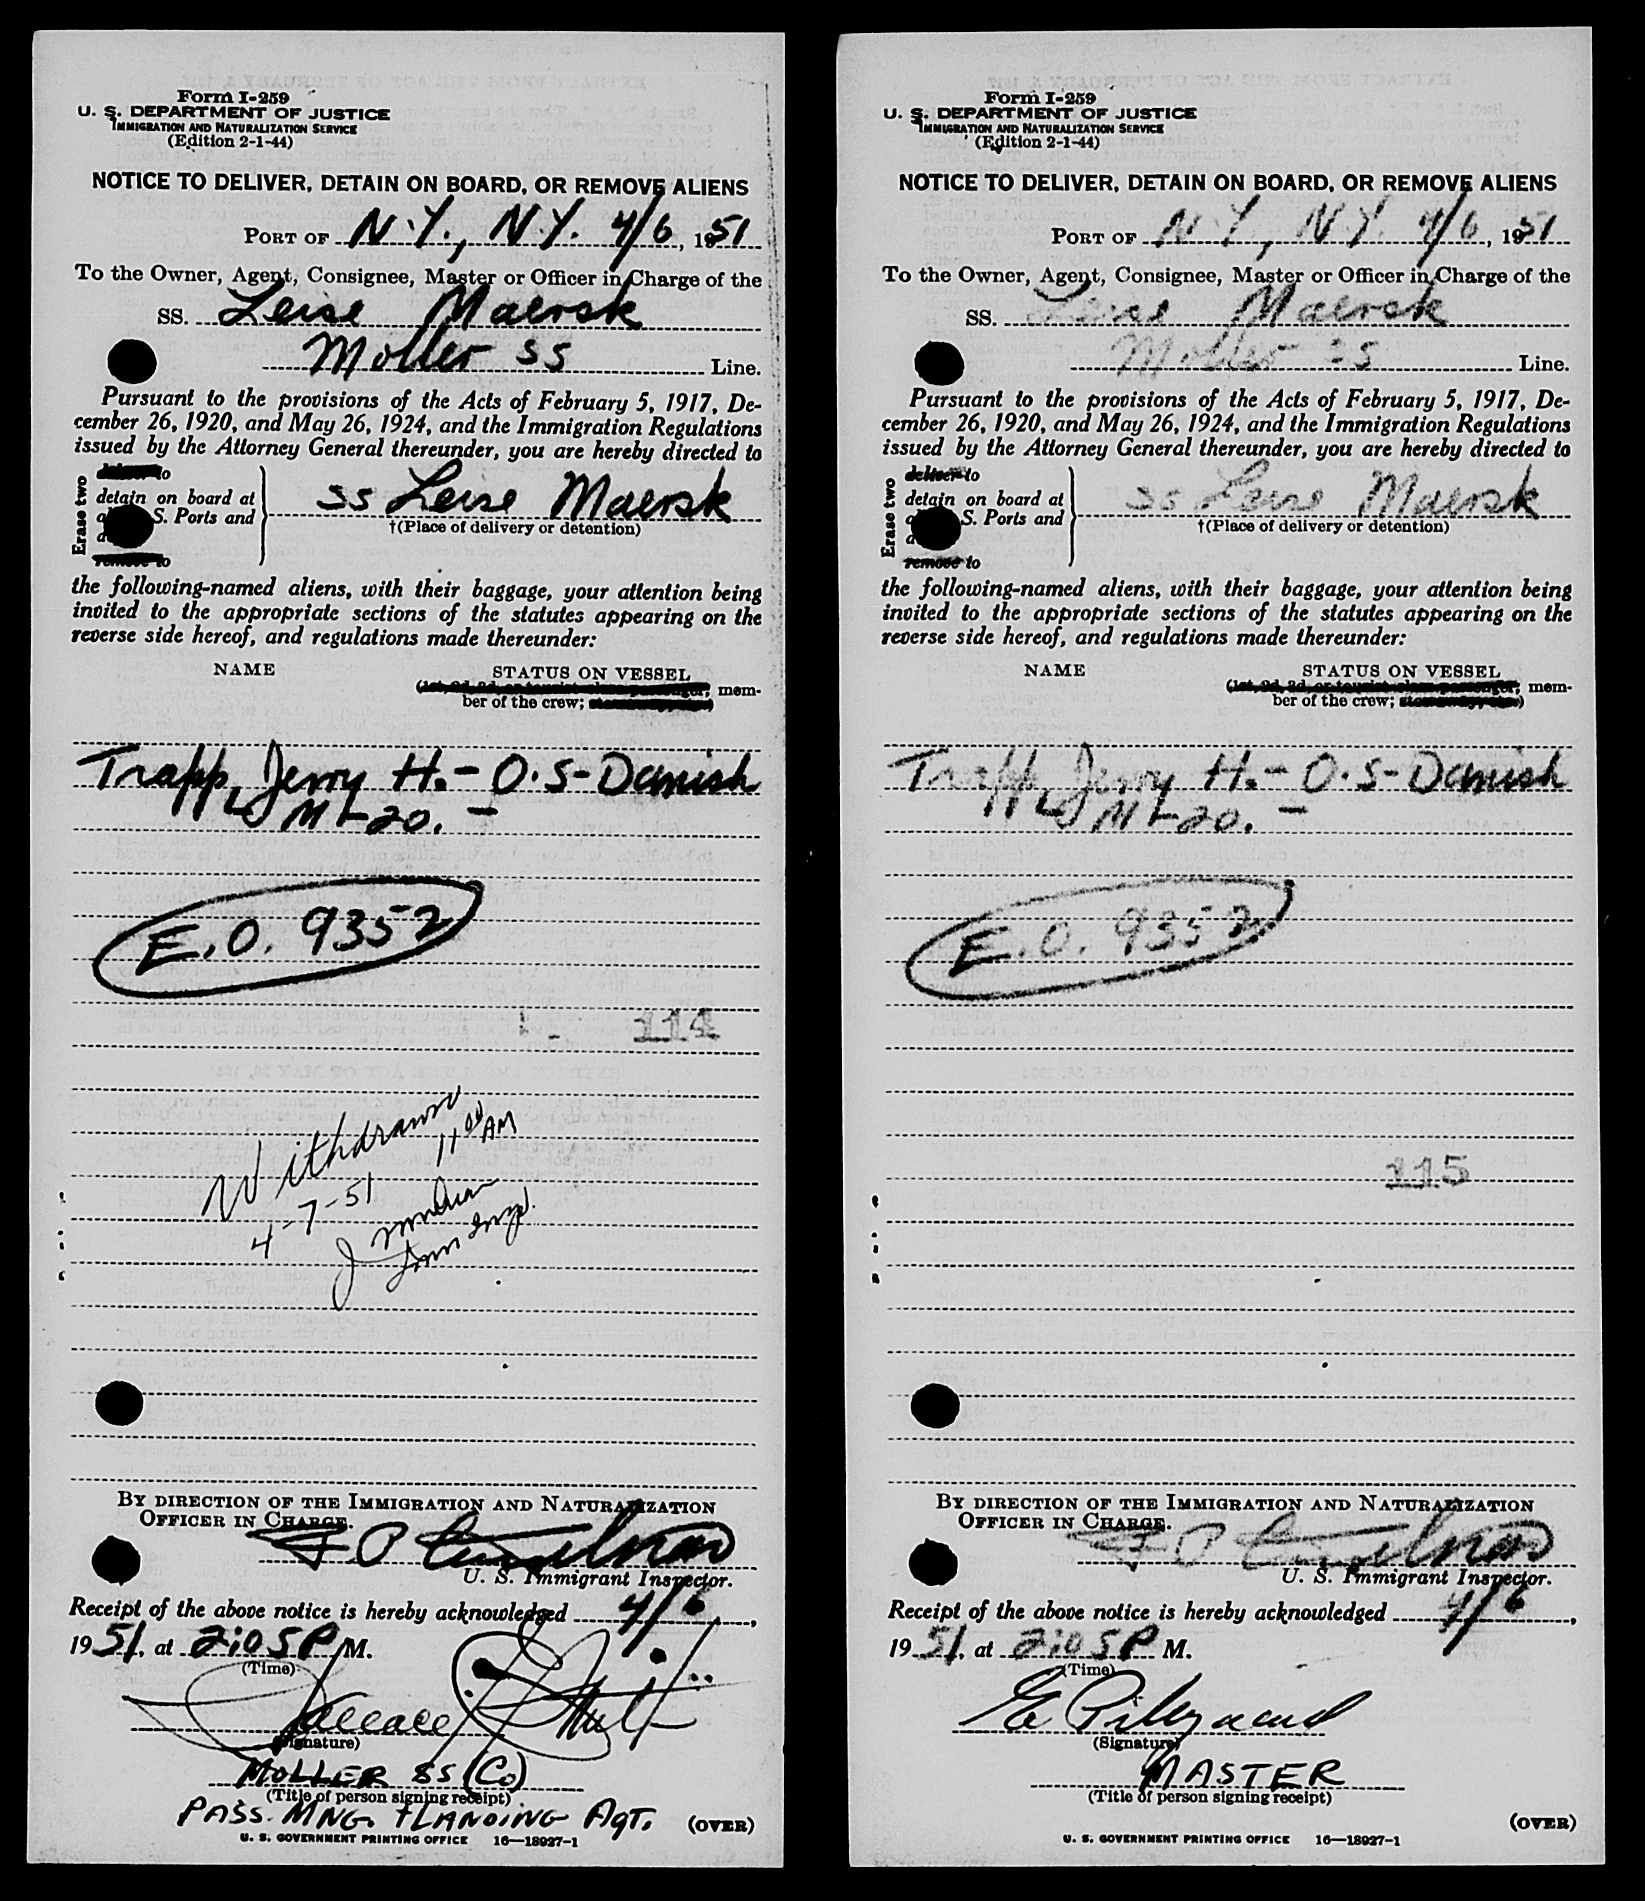 Form I-259
U. S. DEPARTMENT OF JUSTICE
IMMIGRATION AND NATURALIZATION SERVICE
(Edition 2-1-44)
NOTICE TO DELIVER, DETAIN ON BOARD, OR REMOVE ALIENS
PORT OF N.Y., N.Y. 4/6, 1951
To the Owner, Agent, Consignee, Master or Officer in Charge of the
SS. Leise Maersk
Moller SS Line.
Pursuant to the provisions of the Acts of February 5, 1917, De-
cember 26, 1920, and May 26, 1924, and the Immigration Regulations
issued by the Attorney General thereunder, you are hereby directed to
Erase two
to
detain on board at
S. Ports and
remove to
SS Leise Maersk
†(Place of delivery or detention)
the following-named aliens, with their baggage, your attention being
invited to the appropriate sections of the statutes appearing on the
reverse side hereof, and regulations made thereunder:
NAME STATUS ON VESSEL
(1st, 2d, 3d, or tourist class passenger; mem-
ber of the crew;
Trapp, Jerry H. - O.S - Danish
M - 20. -
E.O. 9352
114
Withdrawn
4-7-51 11 00 AM
By direction of the Immigration and Naturalization
Officer in Charge.
U. S. Immigrant Inspector.
Receipt of the above notice is hereby acknowledged 4/6,
1951, at 2:05 P M.
(Time)
Wallace
(Signature)
MOLLER SS (Co)
(Title of person signing receipt)
PASS. MNG. + LANDING AGT. (OVER)
U. S. GOVERNMENT PRINTING OFFICE 16—18927-1
Form I-259
U. S. DEPARTMENT OF JUSTICE
IMMIGRATION AND NATURALIZATION SERVICE
(Edition 2-1-44)
NOTICE TO DELIVER, DETAIN ON BOARD, OR REMOVE ALIENS
PORT OF N.Y., N.Y. 4/6, 1951
To the Owner, Agent, Consignee, Master or Officer in Charge of the
SS. Leise Maersk
Moller SS Line.
Pursuant to the provisions of the Acts of February 5, 1917, De-
cember 26, 1920, and May 26, 1924, and the Immigration Regulations
issued by the Attorney General thereunder, you are hereby directed to
Erase two
deliver to
detain on board at
S. Ports and
remove to
SS Leise Maersk
†(Place of delivery or detention)
the following-named aliens, with their baggage, your attention being
invited to the appropriate sections of the statutes appearing on the
reverse side hereof, and regulations made thereunder:
NAME STATUS ON VESSEL
(1st, 2d, 3d, or tourist class passenger; mem-
ber of the crew;
Trapp, Jerry H. - O.S - Danish
M - 20. -
E.O. 9352
115
By direction of the Immigration and Naturalization
Officer in Charge.
U. S. Immigrant Inspector.
Receipt of the above notice is hereby acknowledged 4/6,
1951, at 2:05 P M.
(Time)
(Signature)
MASTER
(Title of person signing receipt)
(OVER)
U. S. GOVERNMENT PRINTING OFFICE 16—18927-1